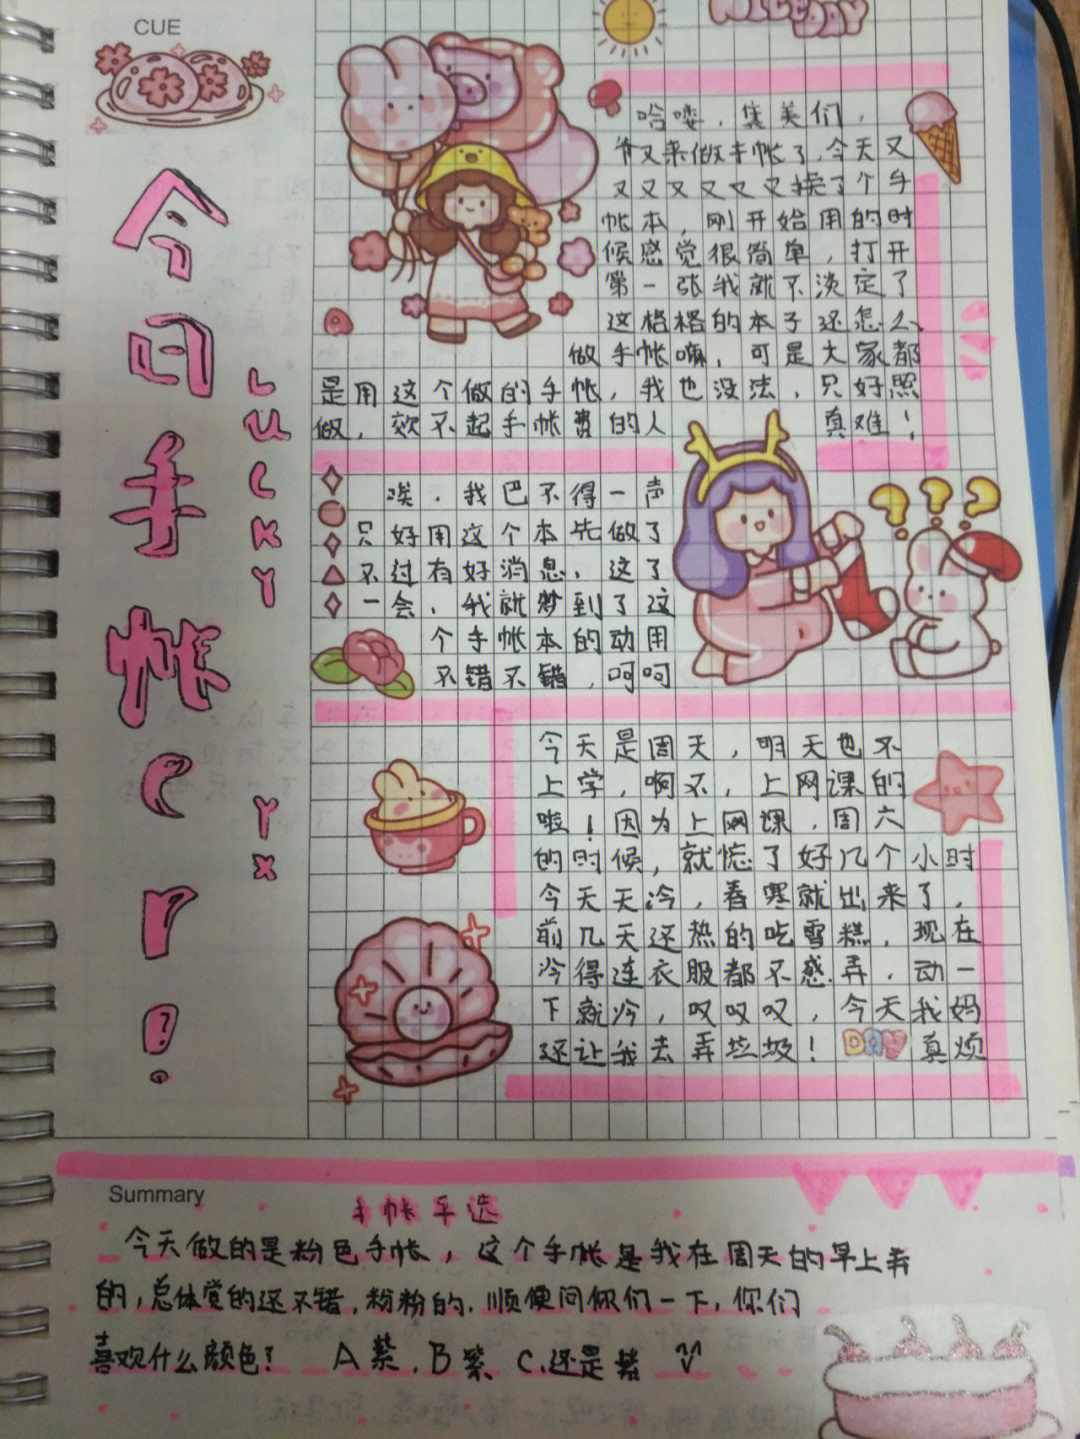 CUE
NICE DAY
今日手帐cr!
LUCKY
YX
哈喽，集美们，
爷又来做手帐了，今天又
又又又又又又换了个手
帐本，刚开始用的时
候感觉很简单，打开
第一张我就不淡定了
这格格的本子还怎么
做手帐嘛，可是大家都
是用这个做的手帐，我也没法，只好照
做，效不起手帐费的人 真难！
唉，我巴不得一声
只好用这个本先做了
不过有好消息，这了
一会，我就梦到了这
个手帐本的动用
不错不错，呵呵
今天是周天，明天也不
上学，啊不，上网课的
啦！因为上网课，周六
的时候，就慌了好几个小时
今天天冷，春寒就出来了，
前几天还热的吃雪糕，现在
冷得连衣服都不感弄，动一
下就冷，叹叹叹，今天我妈
还让我去弄垃圾！DAY真烦
Summary
手帐平选
今天做的是粉色手帐，这个手帐是我在周天的早上弄
的，总体觉的还不错，粉粉的，顺便问你们一下，你们
喜欢什么颜色？ A紫，B紫 C，还是紫